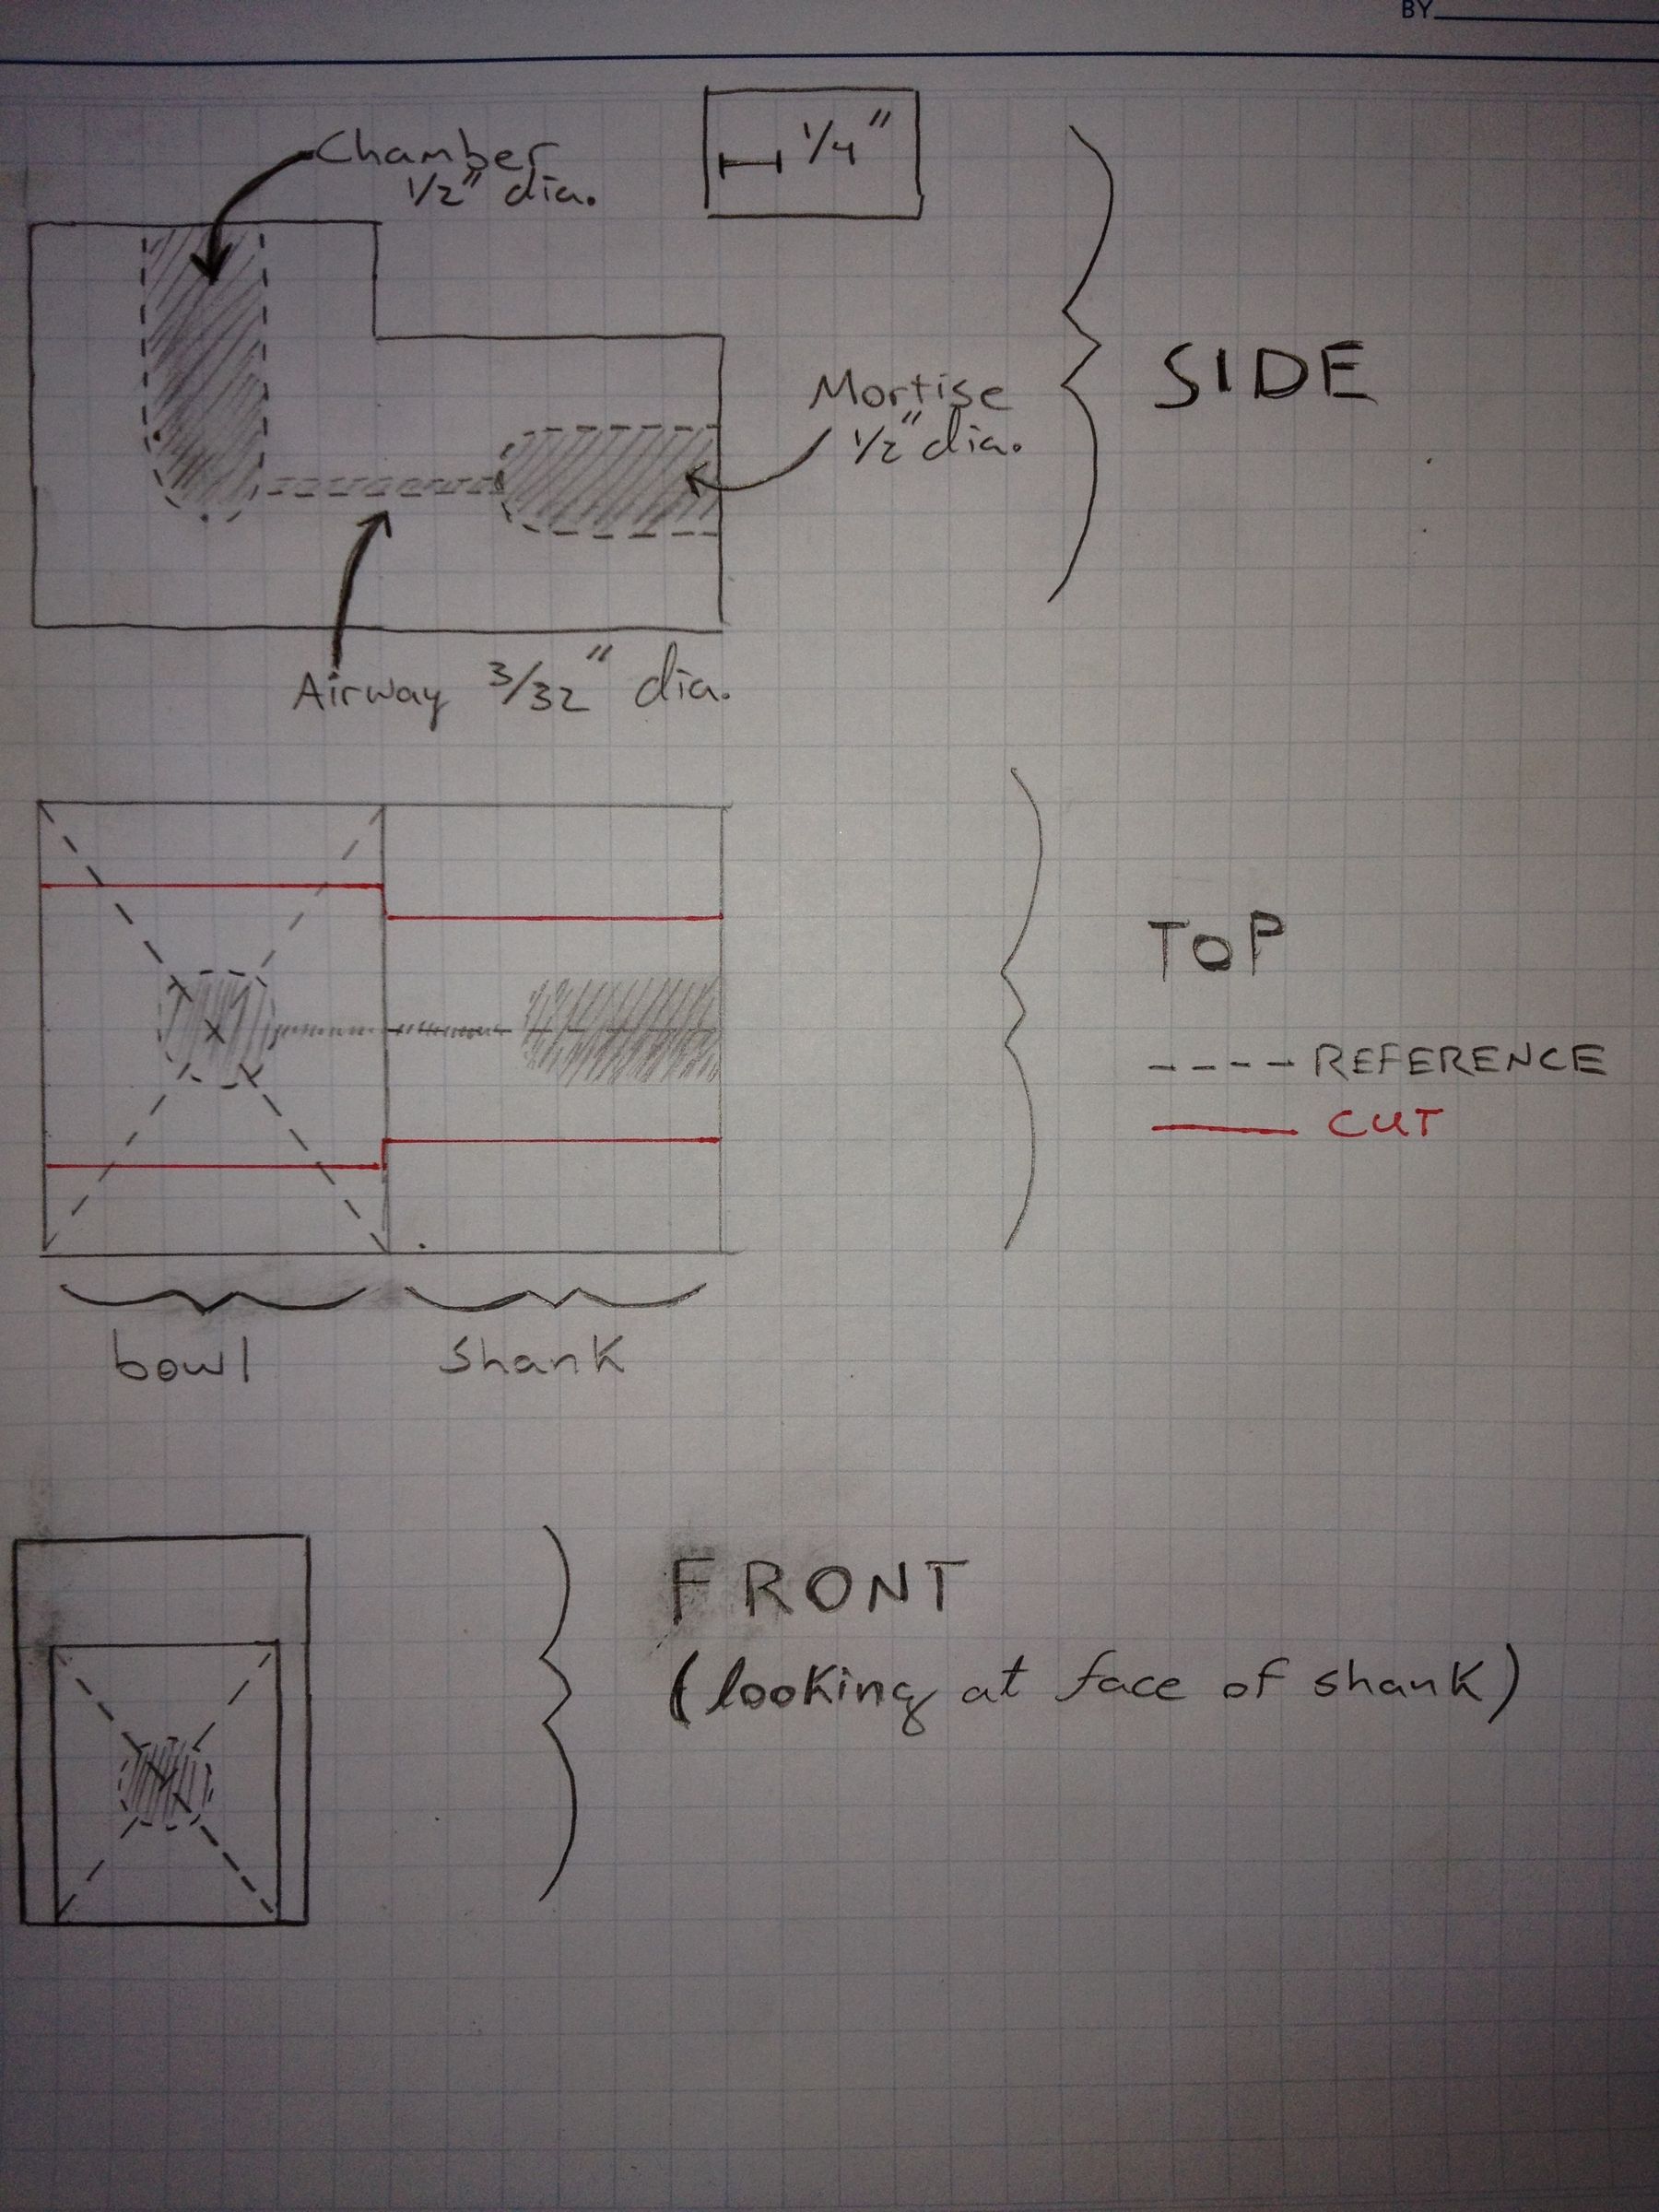 BY
Chamber
1/2" dia.
1/4"
SIDE
Mortise
1/2" dia.
Airway 3/32" dia.
TOP
REFERENCE
CUT
bowl
shank
FRONT
(looking at face of shank)